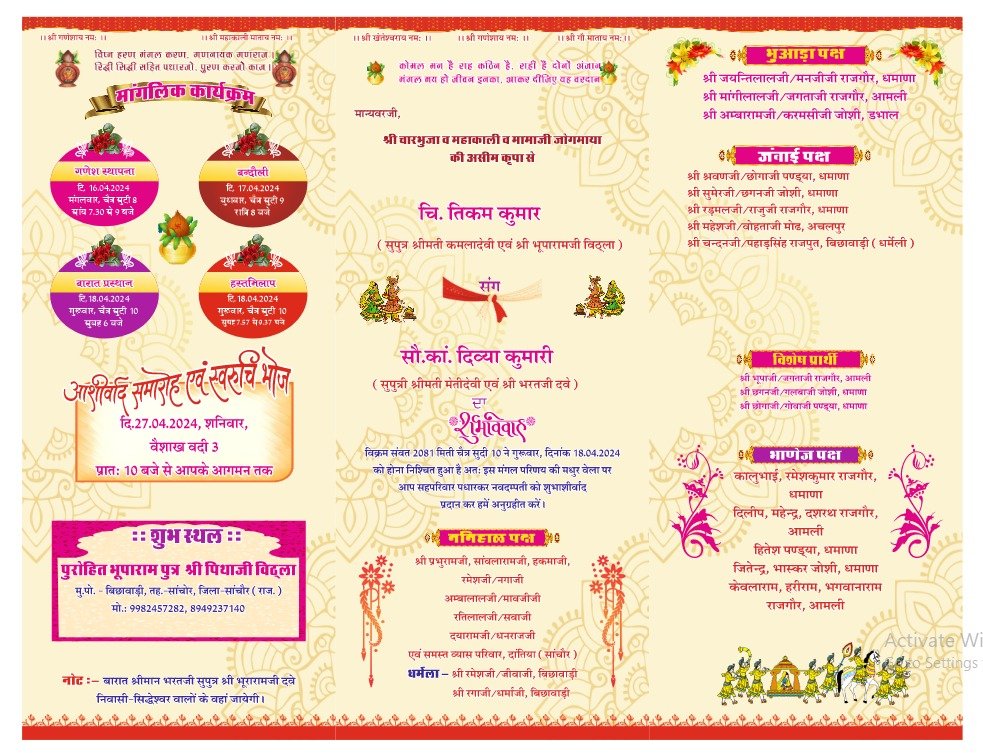 ।। श्री गणेशाय नमः ।।
।। श्री महाकाली माताय नमः ।।
विघ्न हरण मंगल करण, गणनायक गणराज।
रिद्धी सिद्धी सहित पधारजो, पुरण करजो काज।
मांगलिक कार्यक्रम
गणेश स्थापना
दि. 16.04.2024
मंगलवार, चैत्र सुदी 8
सांय 7.30 से 9 बजे
बन्दौली
दि. 17.04.2024
बुधवार, चैत्र सुदी 9
रात्रि 8 बजे
बारात प्रस्थान
दि. 18.04.2024
गुरूवार, चैत्र सुदी 10
सुबह 6 बजे
हस्तमिलाप
दि. 18.04.2024
गुरूवार, चैत्र सुदी 10
सुबह 7.57 से 9.37 बजे
आशीर्वाद समारोह एवं स्वरुचि भोज
दि.27.04.2024, शनिवार,
वैशाख वदी 3
प्रातः 10 बजे से आपके आगमन तक
:: शुभ स्थल ::
पुरोहित भूपाराम पुत्र श्री पिथाजी विठ्ला
मु.पो. - बिछावाड़ी, तह.-सांचोर, जिला-सांचौर ( राज. )
मो.: 9982457282, 8949237140
नोट :– बारात श्रीमान भरतजी सुपुत्र श्री भूरारामजी दवे
निवासी-सिद्धेश्वर वालों के वहां जायेगी।
।। श्री खेतेश्वराय नमः ।।
।। श्री गणेशाय नमः ।।
।। श्री गौ माताय नमः ।।
कोमल मन है राह कठिन है, राही है दोनों अंजान
मंगल मय हो जीवन इनका, आकर दीजिए यह वरदान
मान्यवरजी,
श्री चारभुजा व महाकाली व मामाजी जोगमाया
की असीम कृपा से
चि. तिकम कुमार
( सुपुत्र श्रीमती कमलादेवी एवं श्री भूपारामजी विठ्ला )
संग
सौ.कां. दिव्या कुमारी
( सुपुत्री श्रीमती मेंतीदेवी एवं श्री भरतजी दवे )
दा
शुभविवाह
विक्रम संवत 2081 मिती चैत्र सुदी 10 ने गुरूवार, दिनांक 18.04.2024
को होना निश्चित हुआ है अतः इस मंगल परिणय की मधुर वेला पर
आप सहपरिवार पधारकर नवदम्पती को शुभाशीर्वाद
प्रदान कर हमें अनुग्रहीत करें।
ननिहाल पक्ष
श्री प्रभुरामजी, सांवलारामजी, हकमाजी,
रमेशजी/नगाजी
अम्बालालजी/मावजीजी
रतिलालजी/सवाजी
दयारामजी/धनराजजी
एवं समस्त व्यास परिवार, दांतिया ( सांचोर )
धर्मेला – श्री रमेशजी/जीवाजी, बिछावाड़ी
श्री रगाजी/धर्माजी, बिछावाड़ी
भुआड़ा पक्ष
श्री जयन्तिलालजी/मनजीजी राजगौर, धमाणा
श्री मांगीलालजी/जगताजी राजगौर, आमली
श्री अम्बारामजी/करमसीजी जोशी, डभाल
जंनाई पक्ष
श्री श्रवणजी/छोगाजी पण्ड्या, धमाणा
श्री सुमेरजी/छगनजी जोशी, धमाणा
श्री रड़मलजी/राजुजी राजगौर, धमाणा
श्री महेशजी/वोहताजी मोढ, अचलपुर
श्री चन्दनजी/पहाड़सिंह राजपुत, बिछावाड़ी ( धर्मेली )
विशेष प्रार्थी
श्री भूपाजी/जगताजी राजगौर, आमली
श्री छगनजी/गलबाजी जोशी, धमाणा
श्री छोगाजी/गोवाजी पण्ड्या, धमाणा
भाणेज पक्ष
कालुभाई, रमेशकुमार राजगौर,
धमाणा
दिलीप, महेन्द्र, दशरथ राजगौर,
आमली
हितेश पण्ड्या, धमाणा
जितेन्द्र, भास्कर जोशी, धमाणा
केवलाराम, हरीराम, भगवानाराम
राजगौर, आमली
Activate Wi
Settings